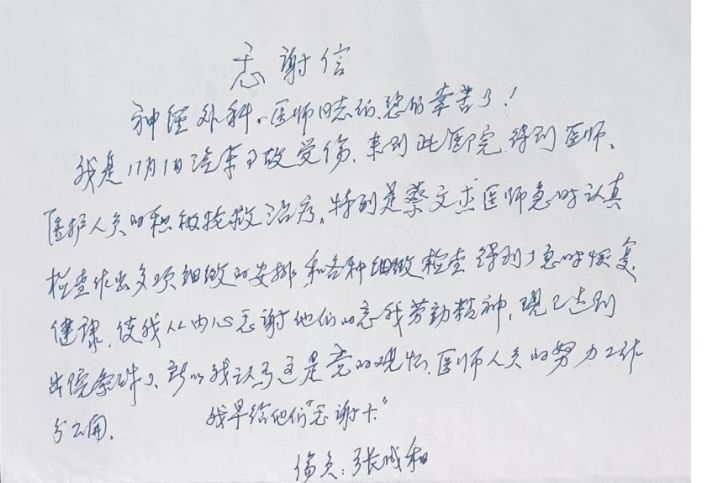 感谢信
神经外科。医师同志们, 您们辛苦了!
我是11月1日汽车事故受伤, 来到此医院, 得到医师、
医护人员的积极抢救治疗。特别是蔡文杰医师急时认真
检查作出多项细致的安排和各种细致检查 得到了急时恢复
健康, 使我从内心感谢他们的忘我劳动精神, 现已达到
出院条件了, 所以我认为这是党的关怀, 医师人员的努力工作
分不开。
我早给他们"感谢卡"
伤员: 张成和